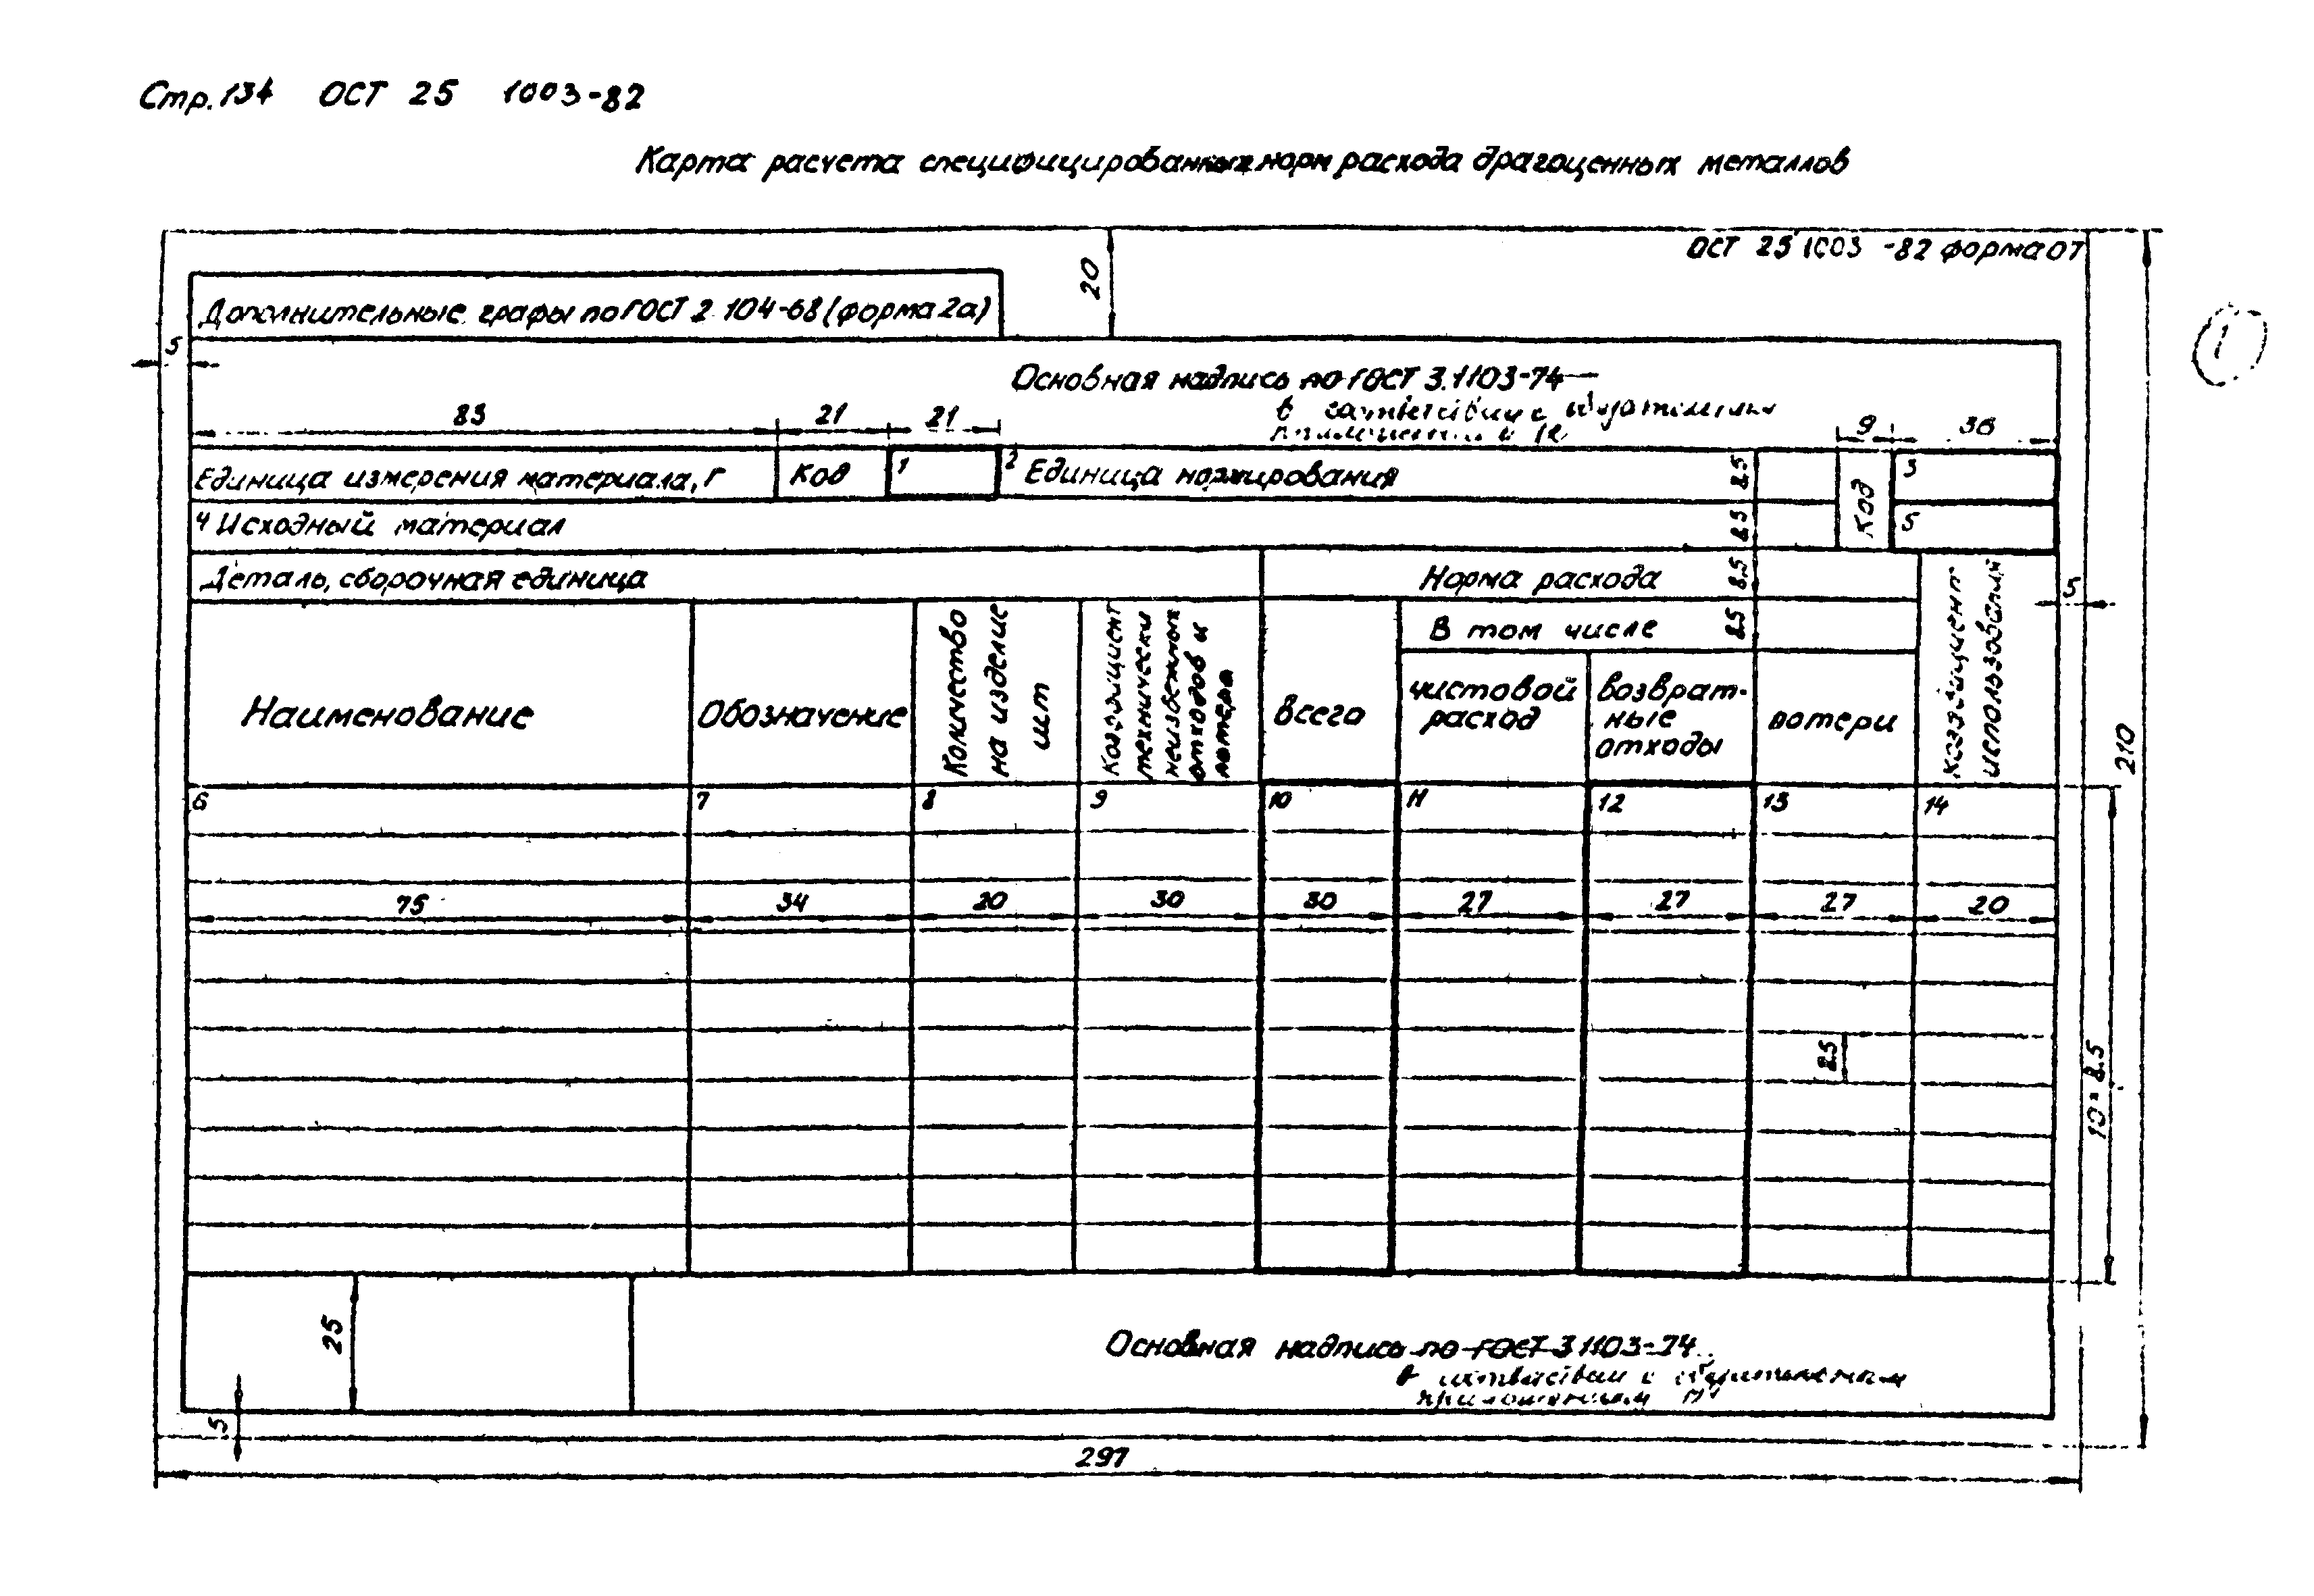 Стр. 134 ОСТ 25 1003-82
Карта расчета специфицированных норм расхода драгоценных металлов
ОСТ 25 1003 -82 форма 07
20
Дополнительные графы по ГОСТ 2 104-68 (форма 2а)
1
5
Основная надпись по ГОСТ 3.1103-74
в соответствии с обязательным
приложением
83 21 21 9 36
Единица измерения материала, г Код 1 2 Единица нормирования 8.5 Код 3
4 Исходный материал 8.5 5
Деталь, сборочная единица Норма расхода 8.5 5
В том числе 8.5
Наименование
Обозначение
Количество
на изделие
шт
Коэффициент
технически
неизбежных
отходов и
потерь
всего
чистовой
расход
возврат-
ные
отходы
потери
коэффициент
использования
210
6 7 8 9 10 11 12 13 14
75 34 20 30 30 27 27 27 20
8.5
10 × 8.5
25
Основная надпись по ГОСТ 3 1103-74
в соответствии с обязательным
приложением
5
297